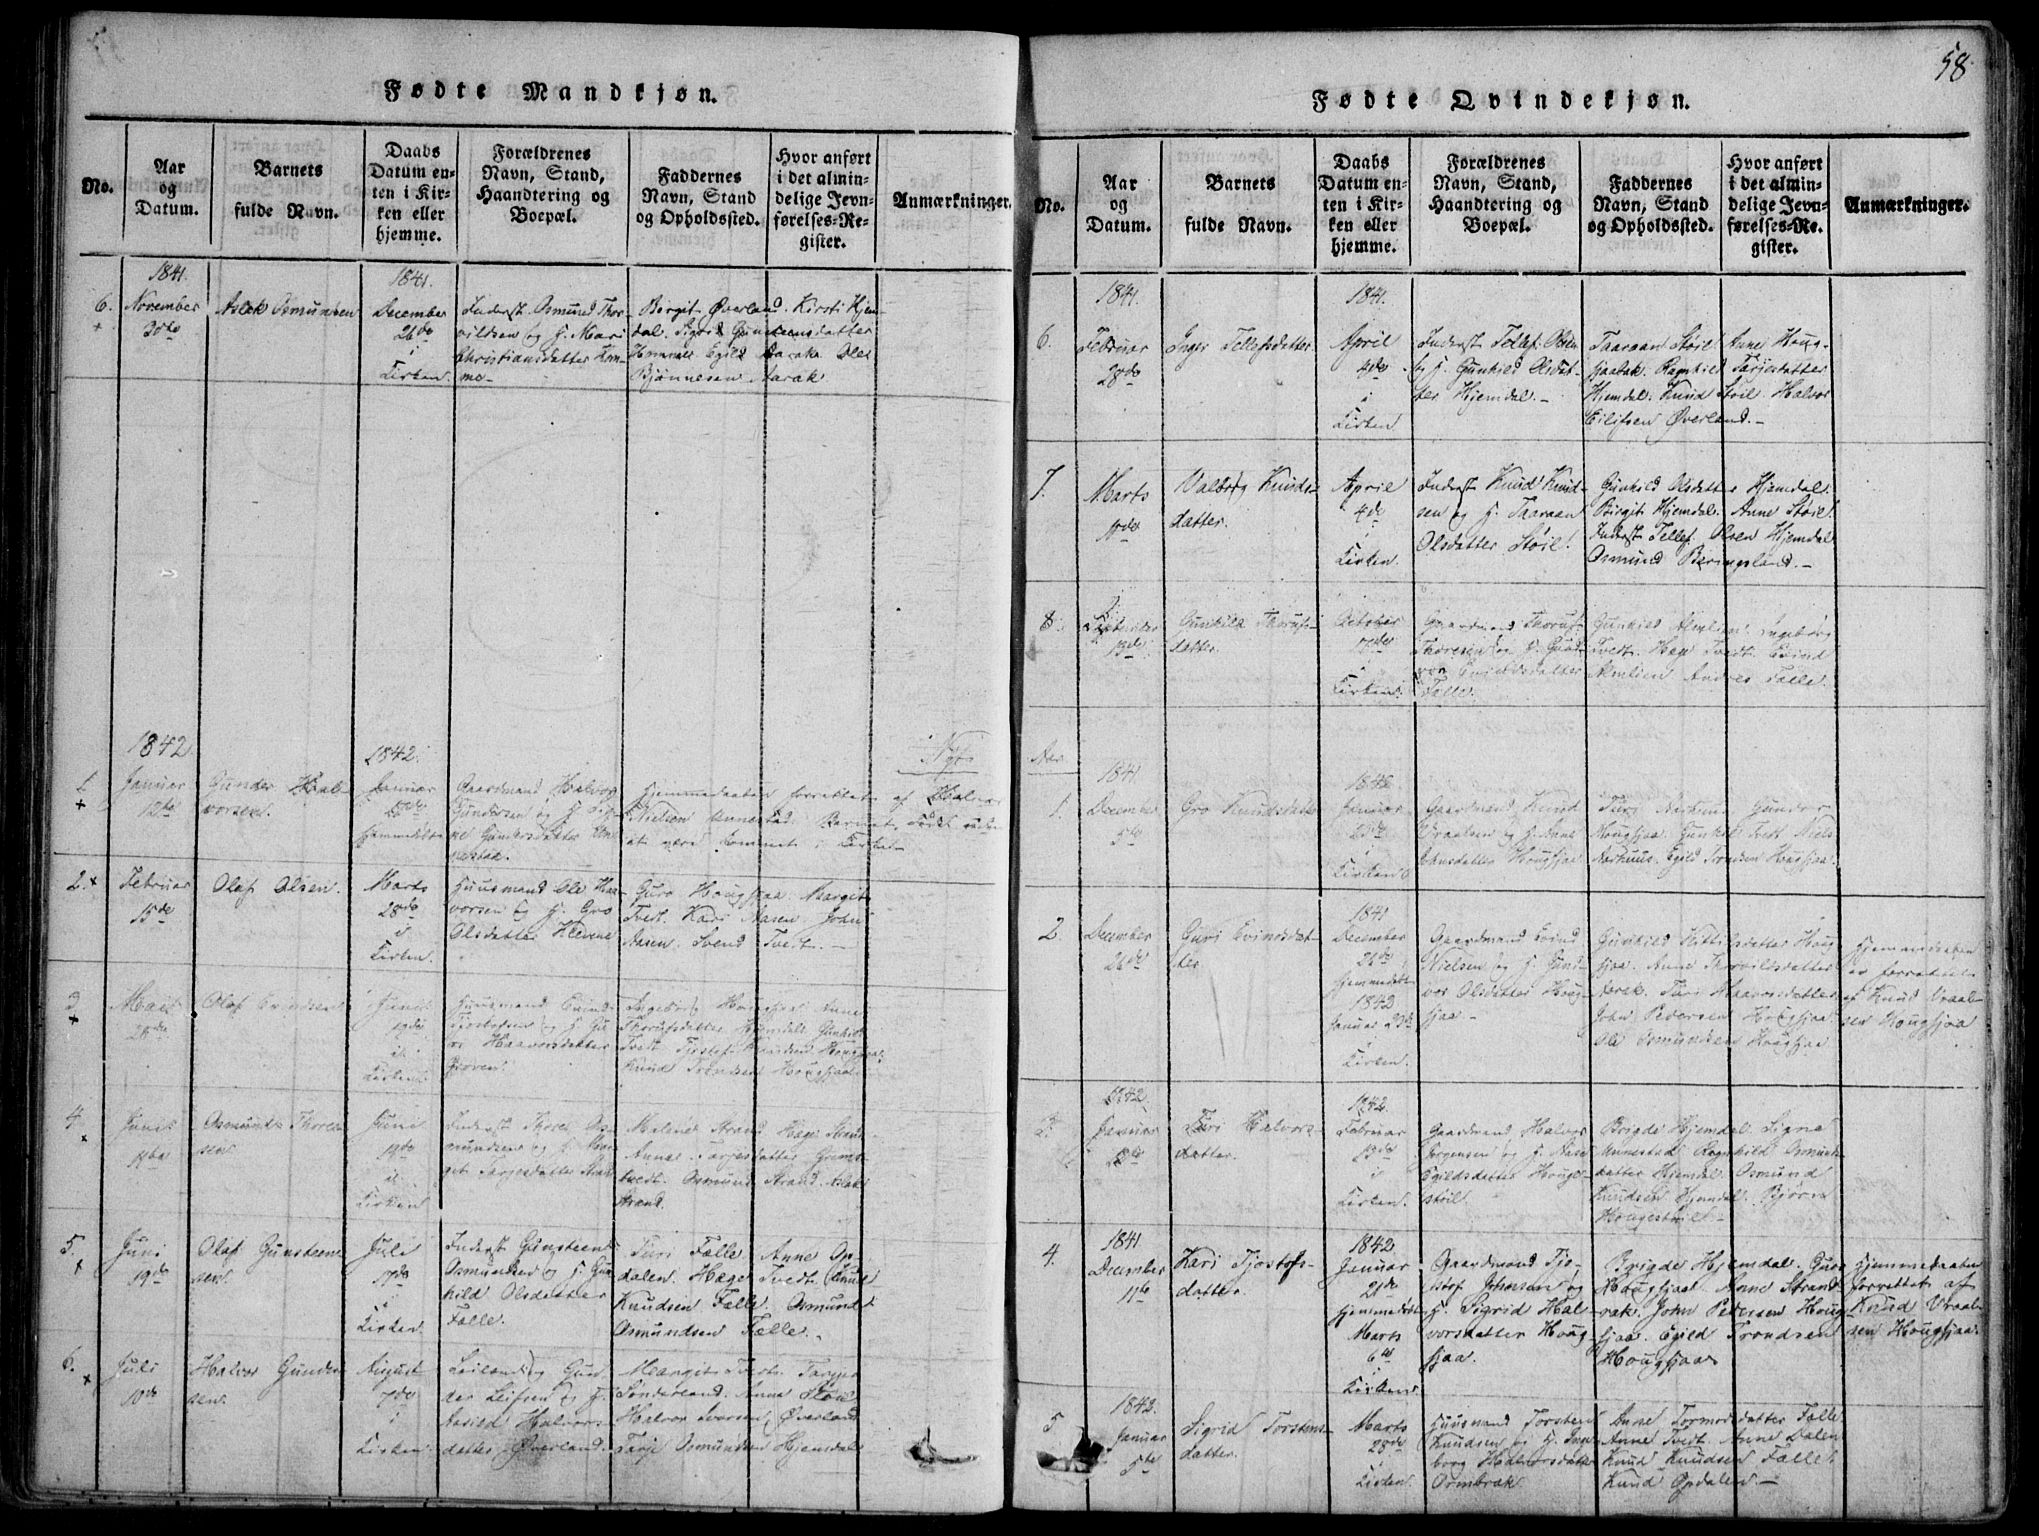 Fødte Mandkjøn.
No.
Aar
og
Datum.
Barnets
fulde Navn.
Daabs
Datum en-
ten i Kir-
ken eller
hjemme.
Forældrenes
Navn, Stand,
Haandtering og
Boepæl.
Faddernes
Navn, Stand
og Opholdssted.
Hvor anført
i det almin-
delige Jevn-
førelses-Re-
gister.
Anmærkninger.
6.
1841.
November
30te
Aslak Osmundsen
1841.
December
26de
i
Kirken.
Inderst Osmund Thor-
vildsen og H. Mari
Christiansdatter Hom-
me.
Birgit Øverland. Kirsti Hjem-
dal. Sigrid Gunsteensdatter
Homme Egild Aarak. Ole
Bjønnesen Aarak
1842
1.
Januar
12te
Gunder Hal-
vorsen.
1842.
Januar
hjemmedøbt
Gaardmand Halvor
Gundersen og H. Sig-
ne Gundersdatter Un-
nestad.
Hjemmedaaben forrettet af Halvor
Nielsen Unnestad. Barnet Død uden
at være kommet i Kirke
2.
Februar
15de
Olaf Olsen.
Marts
28de
i
Kirken.
Huusmand Ole Hal-
vorsen og H. Gro
Olsdatter Klevene
Guro Hougsjaa. Margit
Tvedt. Kari Aasen. John
Aasen. Svend Tvedt.
3
Mai
28de
Olaf Evindsen
Juni
19de
i
Kirken.
Huusmand Evind
Tjostofsen og H. Gu-
ri Haavorsdatter
Ingeborg Hougsjaa. Anne
Thorufsdatter Hjemdal. Gunhild
Tvedt. Tjostof Knudsen Hougsjaa.
Knud Trondsen Hougsjaa.
4.
Juni
11te
Osmund Thores-
sen
Juni
19de
i
Kirken
Inderst Thores Os-
mundsen og H. Mar-
get Tarjesdatter Strand
Malene Strand. Hæge Strand.
Anne Tarjesdatter Grims-
tvedt. Osmund Strand. Aslak
Strand.
5.
Juni
19de
Olaf Gunsteen-
sen.
Juli
17de
i
Kirken.
Inderst Gunsteen
Osmundsen og H. Gun-
hild Olsdatter
Falle.
Turi Falle. Anne Op-
dalen. Hæge Tvedt. Knud
Knudsen Falle. Osmund
Osmundsen Falle.
6.
Juli
10de
Halvor Gunder-
sen.
August
7de
i
Kirken.
Leilænd. Gun-
der Leifsen og H.
Aasild Halvors-
datter Øverland.
Margit Tvedt. Tarjer
Sønderland. Anne Støil
Halvor Iversen Øverland
Tarje Osmundsen Hjemdal
58
Fødte Qvindekjøn.
No.
Aar
og
Datum.
Barnets
fulde Navn.
Daabs
Datum en-
ten i Kir-
ken eller
hjemme.
Forældrenes
Navn, Stand,
Haandtering og
Boepæl.
Faddernes
Navn, Stand
og Opholdssted.
Hvor anført
i det almin-
delige Jevn-
førelses-Re-
gister.
Anmærkninger.
6.
1841.
Februar
28de
Inger Tellefsdatter
1841.
April
4de
i
Kirken
Inderst Tellef Olsen
og H. Gunhild Olsdat-
ter Hjemdal.
Taaraan Støil Anne Houg-
sjaabak. Ragnhild Tarjesdatter
Hjemdal. Knud Støil. Halvor
Eilifsen Øverland.
7.
Marts
10de
Valborg Knuds-
datter.
April
4de
i
Kirken.
Inderst Knud Knud-
sen og H. Taaraan
Olsdatter Støil.
Gunhild Olsdatter Hjemdal.
Birgit Hjemdal. Anne Støil.
Inderst Tellef Olsen Hjemdal
Osmund Beringsland.
8.
September
13de
Gunhild Thorufs-
datter.
October
17de
i
Kirken.
Gaardmand Thoruf
Thoresen og H. Gund-
vor Evindsdatter
Falle.
Gunhild Almlien. Ingeborg
Tvedt. Hæge Tvedt. Evind
Almlien Andres Falle.
Aar
1841
1.
December
5te
Gro Knudsdatter
1842
Januar
i
Kirken
Gaardmand Knud
Vraalsen og H. Anne
Hougsjaa
Turi Aarhuus Gunder
Hougsjaa. Gunhild Tvedt Niels
Aarhuus. Egild Trondsen Hougsjaa.
2.
December
26de
Guri Evindsdat-
ter
1841
December
26de
hjemmedøbt
1842
Januar
i
Kirken.
Gaardmand Evind
Nielsen og H. Gund-
vor Olsdatter Houg-
sjaa.
Gunhild Olsdatter Houg-
sjaa. Anne Thorvildsdatter
Aarak. Turi Haavorsdatter
John Pedersen Hougsjaa
Ole Osmundsen Hougsjaa
Hjemmedaaben
er forrettet
af Knud Vraal-
sen Hougsjaa
3.
1842.
Januar
Turi Halvors-
datter.
1842.
Februar
13de
i
Kirken.
Gaardmand Halvor
Jørgensen og H. Aase
Egildsdatter Houge-
støil.
Brigde Hjemdal. Signe
Unnestad. Ragnhild Osmunds-
datter Hjemdal. Osmund
Knudsen Hjemdal. Bjørn
Hougestøil
4.
1841
December
11te
Kari Tjostofs-
datter.
1842.
Januar
21de
hjemmedøbt
Marts
6te
i
Kirken.
Gaardmand Tjo-
stof Johnsen og
H. Sigrid Hal-
vorsdatter Houg-
sjaa.
Brigde Hjemdal. Guro
Hougsjaa. Anne Strand-
rak. John Pedersen Houg-
sjaa. Egild Trondsen
Hougsjaa
Hjemmedaaben
forrettet af
Knud Vraal-
sen Hougsjaa.
5
1842.
Januar
5te
Sigrid Torstens-
datter.
Marts
28de
i
Kirken.
Huusmand Torsten
Knudsen og H. Inge-
borg Halvorsdatter
Ormbrak
Anne Tormodsdatter Falle
Anne Tvedt. Anne Dalen
Knud Knudsen Falle.
Knud Opdalen.